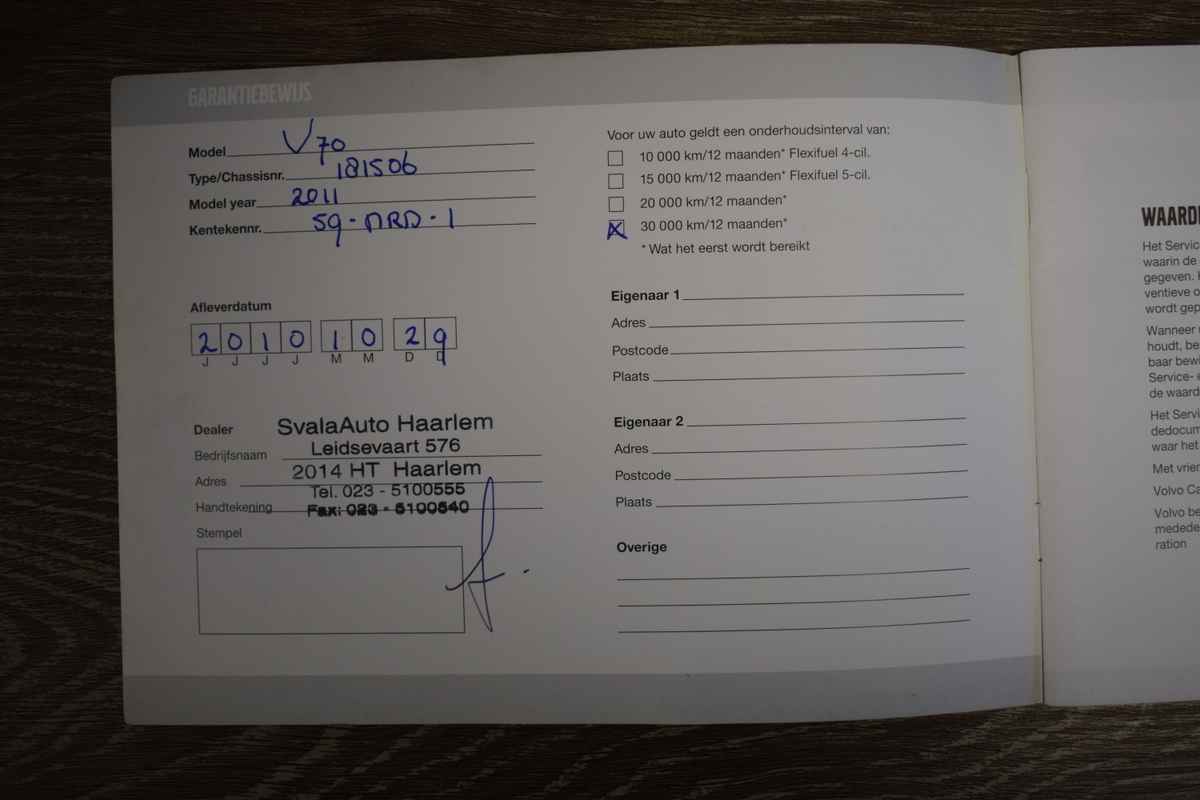 GARANTIEBEWIJS
Model V70
Type/Chassisnr. 181506
Model year 2011
Kentekennr. 59-NRD-1
Afleverdatum
2010 10 29
J J J J M M D D
Dealer
SvalaAuto Haarlem
Bedrijfsnaam Leidsevaart 576
Adres 2014 HT Haarlem
Tel. 023 - 5100555
Handtekening Fax: 023 - 5100540
Stempel
Voor uw auto geldt een onderhoudsinterval van:
10 000 km/12 maanden* Flexifuel 4-cil.
15 000 km/12 maanden* Flexifuel 5-cil.
20 000 km/12 maanden*
X 30 000 km/12 maanden*
* Wat het eerst wordt bereikt
Eigenaar 1
Adres
Postcode
Plaats
Eigenaar 2
Adres
Postcode
Plaats
Overige
Het Servic
waarin de
gegeven.
ventieve o
wordt gep
Wanneer
houdt, be
baar bewi
Service- e
de waard
Het Servi
dedocum
waar het
Met vrien
Volvo Ca
Volvo be
medede
ration